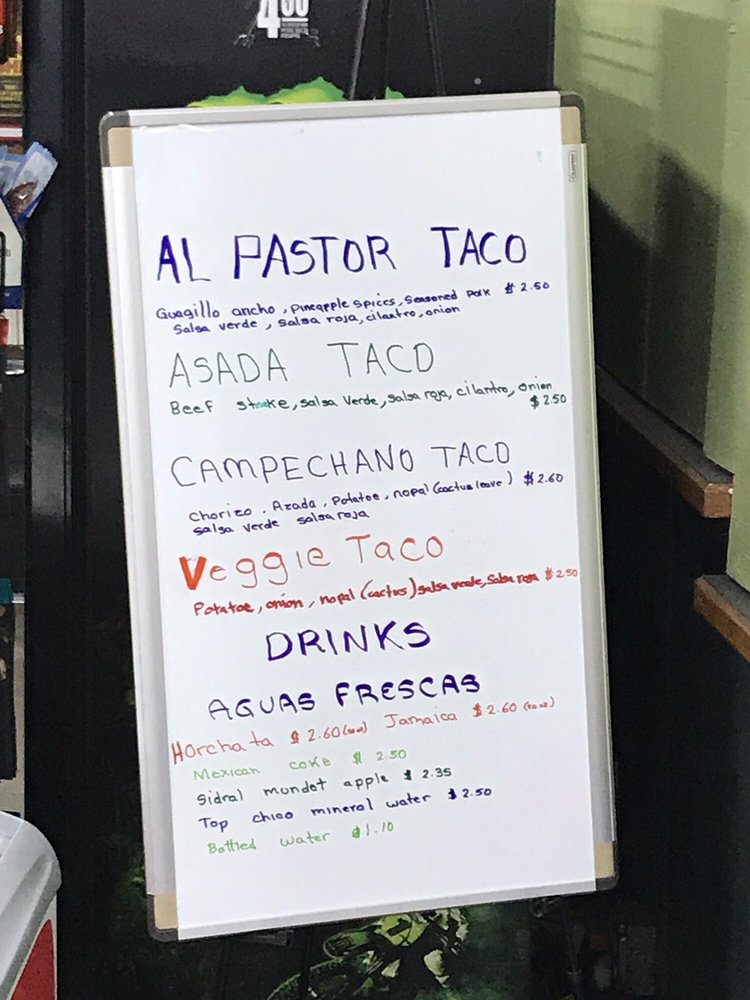 4
AL PASTOR TACO
Guagillo ancho, Pineapple spices, seasoned Pork $2.50
Salsa verde, salsa roja, cilantro, onion
ASADA TACO
Beef stake, salsa verde, salsa roja, cilantro, onion
$2.50
CAMPECHANO TACO
Chorizo, Azada, Potatoe, nopal (cactus leave) $2.60
salsa verde salsa roja
Veggie Taco
Potatoe, onion, nopal (cactus) salsa verde, Salsa roja $2.50
DRINKS
AGUAS FRESCAS
Horchata $2.60 Jamaica $2.60
Mexican coke $2.50
Sidral mundet apple $2.35
Top chico mineral water $2.50
Bottled water $1.10